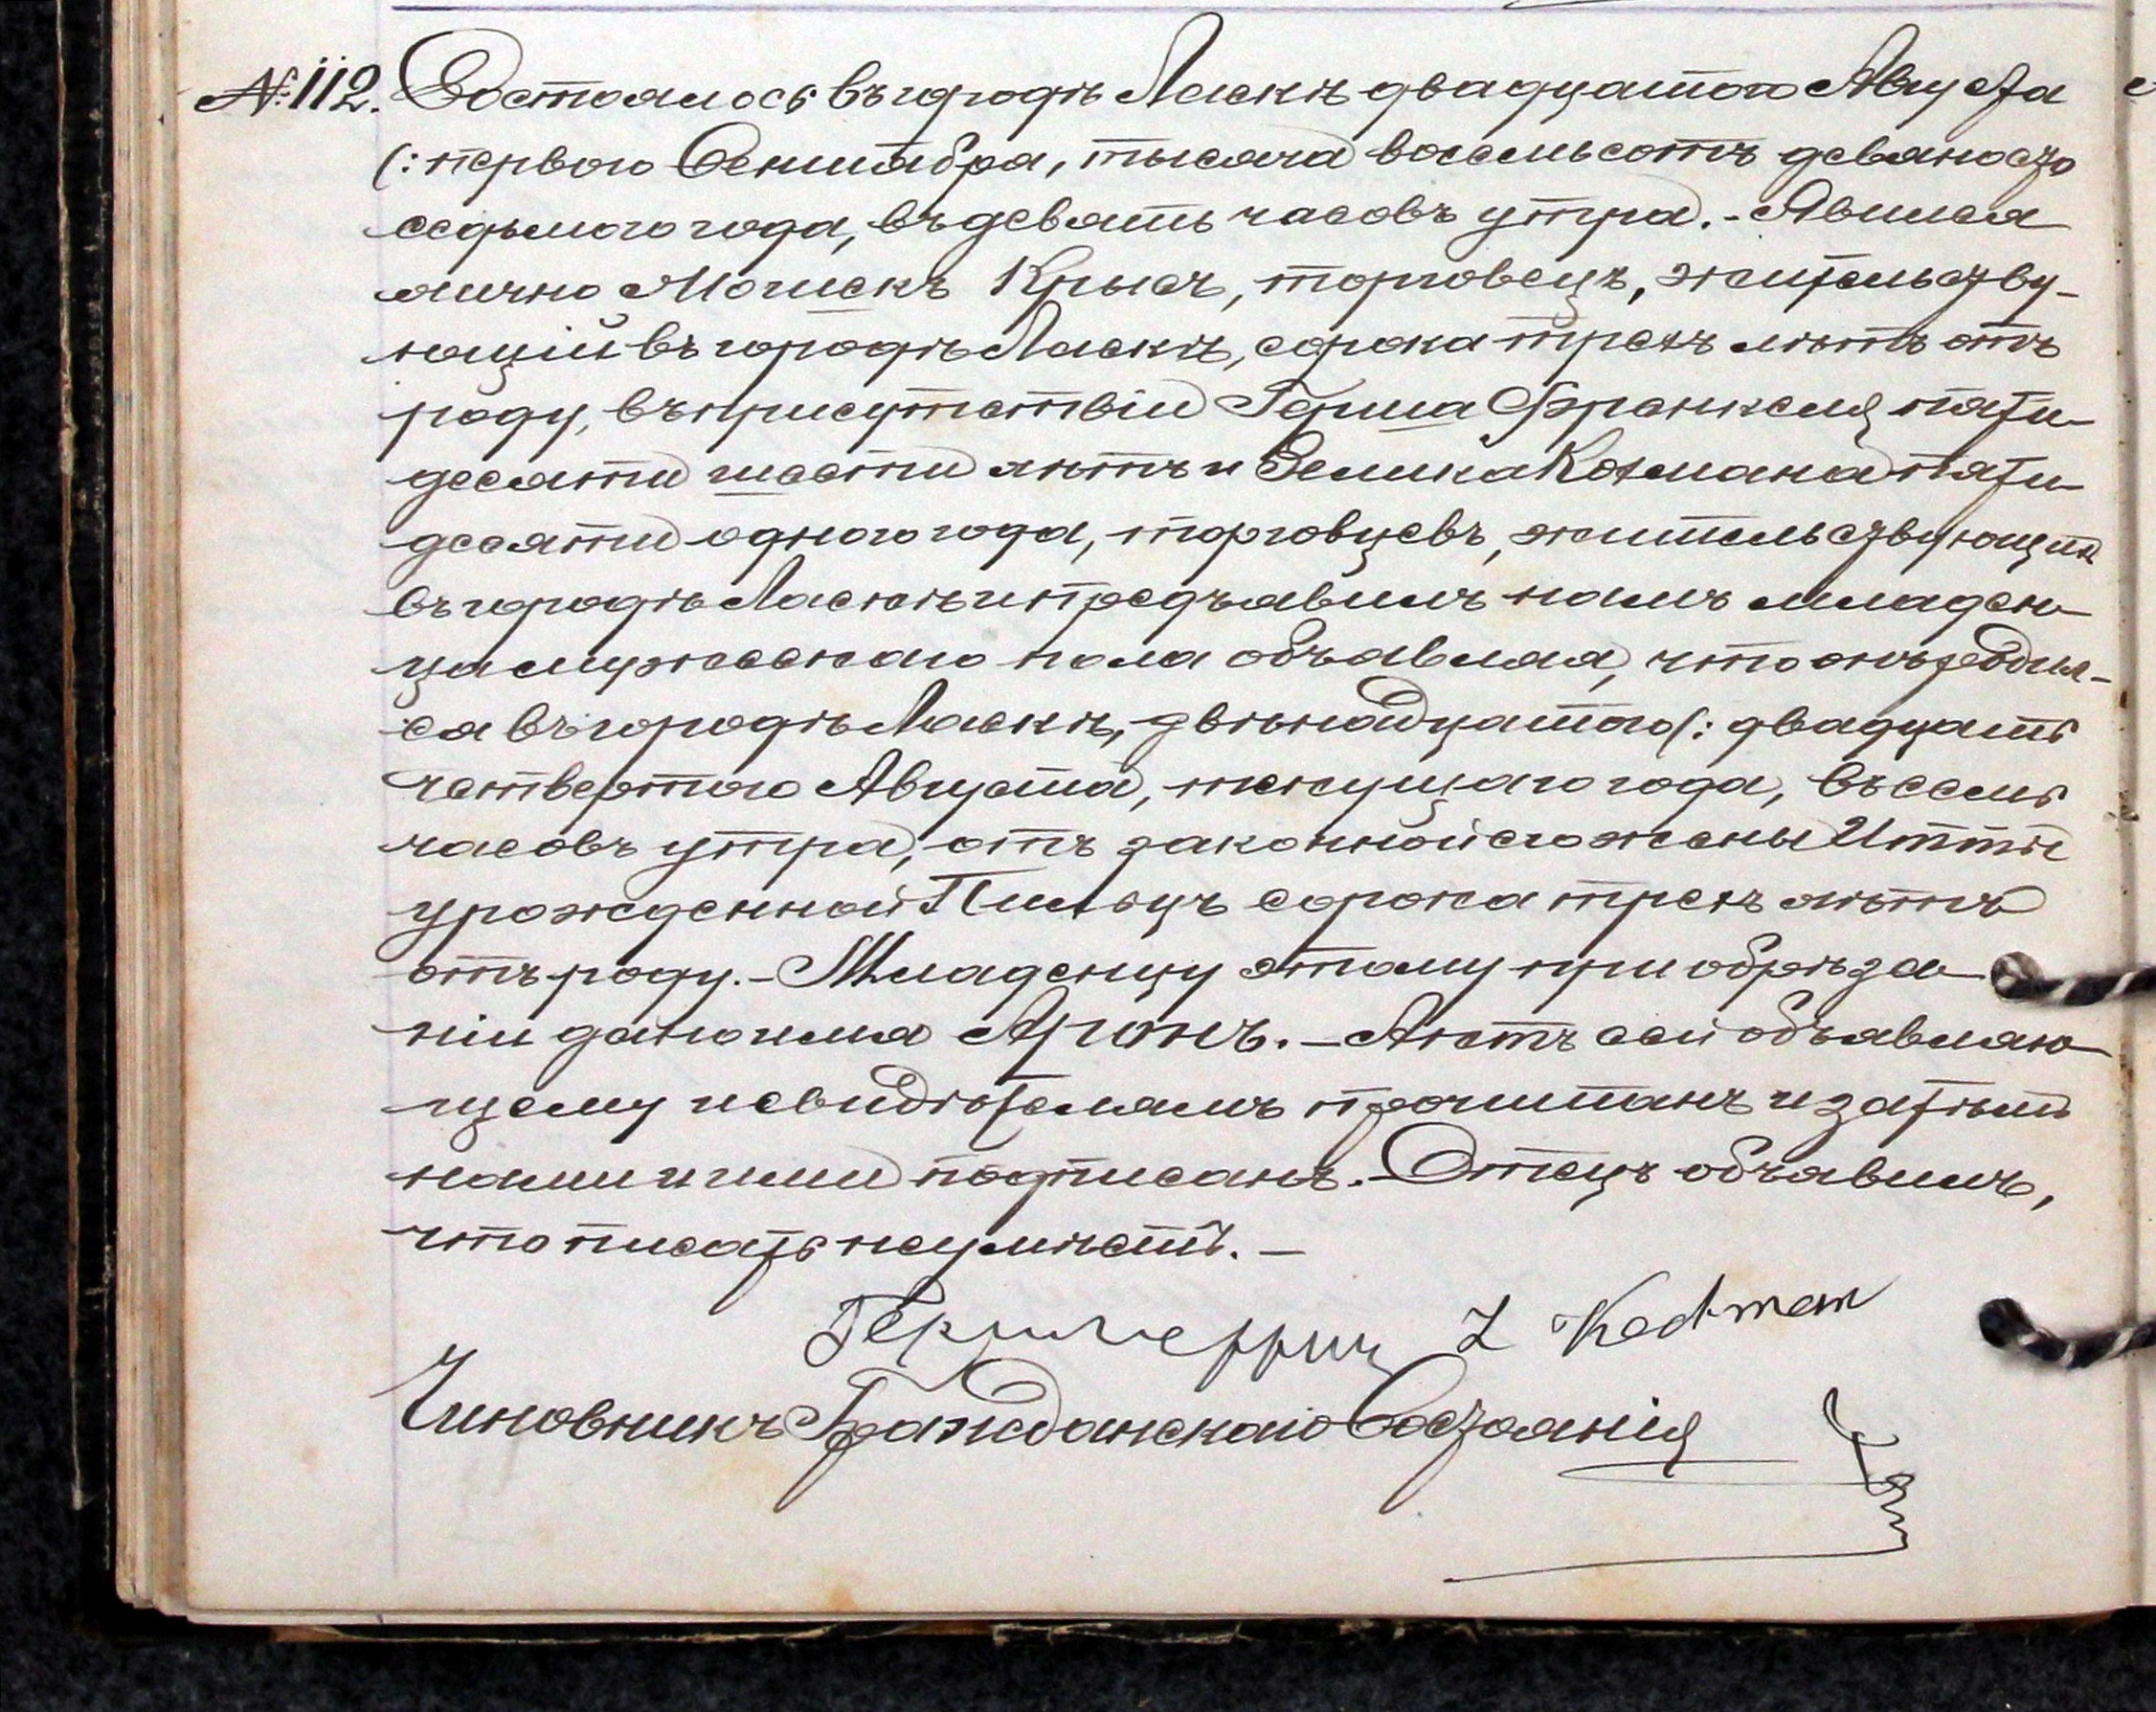 № 112. Состоялось въ городѣ Ласкѣ двадцатого Августа
(: перваго Сентября, тысяча восемьсотъ девяносто
седьмого года, въ девять часовъ утра. - Явился
лично Мошекъ Крысъ, торговецъ, жительству-
ющій въ городѣ Ласкѣ, сорока трехъ лѣтъ отъ
роду, въ присутствіи Герша Франкеля пяти-
десяти шести лѣтъ и Зелика Котмана пяти-
десяти одного года, торговцевъ, жительствующихъ
въ городѣ Ласкѣ и предъявилъ намъ младен-
ца мужескаго пола объявляя, что онъ родил-
ся въ городѣ Ласкѣ, двѣнадцатаго (: двадцать
четвертого Августа, текущаго года, въ семь
часовъ утра, отъ законной его жены Иттѣ
урожденной Пильцъ сорока трехъ лѣтъ
отъ роду. - Младенцу этому при обрѣза-
ніи дано имя Аронъ. - Актъ сей объявляю-
щему и свидѣтелямъ прочитанъ и затѣмъ
нами и ими подписанъ. - Отецъ объявилъ,
что писать неумѣетъ. -
Kotman
Чиновникъ Гражданскаго Состоянія